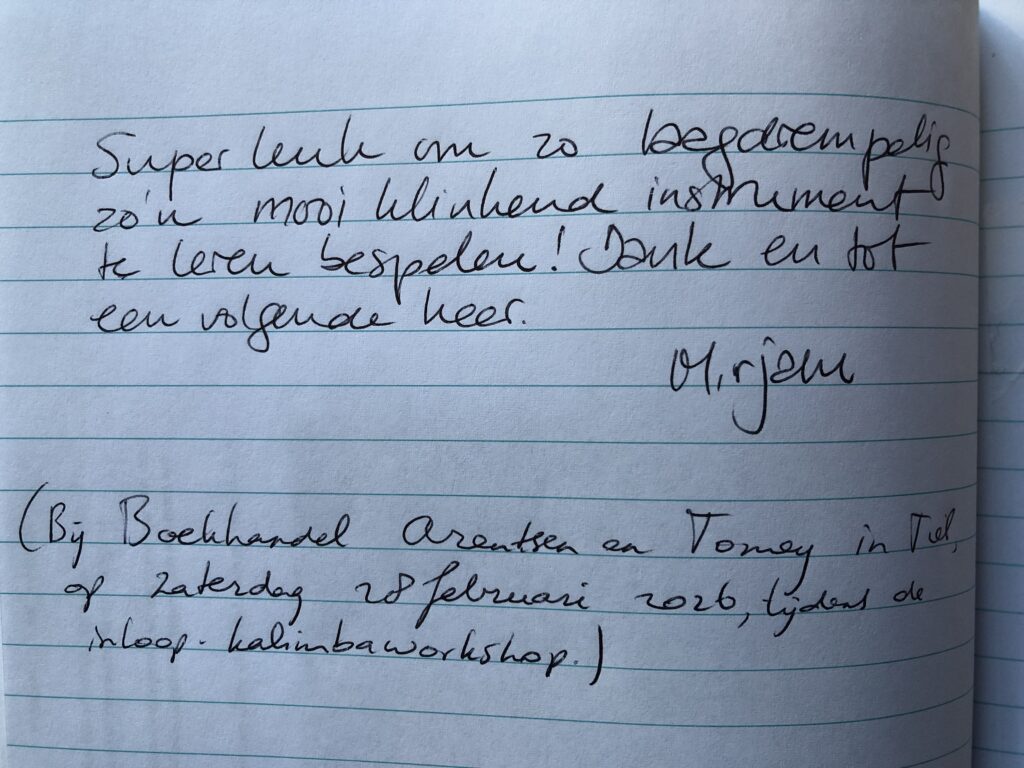 Super leuk om zo laagdrempelig
zo'n mooi klinkend instrument
te leren bespelen! Dank en tot
een volgende keer.
Mirjam
(Bij Boekhandel Arentsen en Tomey in Tiel,
op zaterdag 28 februari 2026, tijdens de
inloop-kalimbaworkshop.)